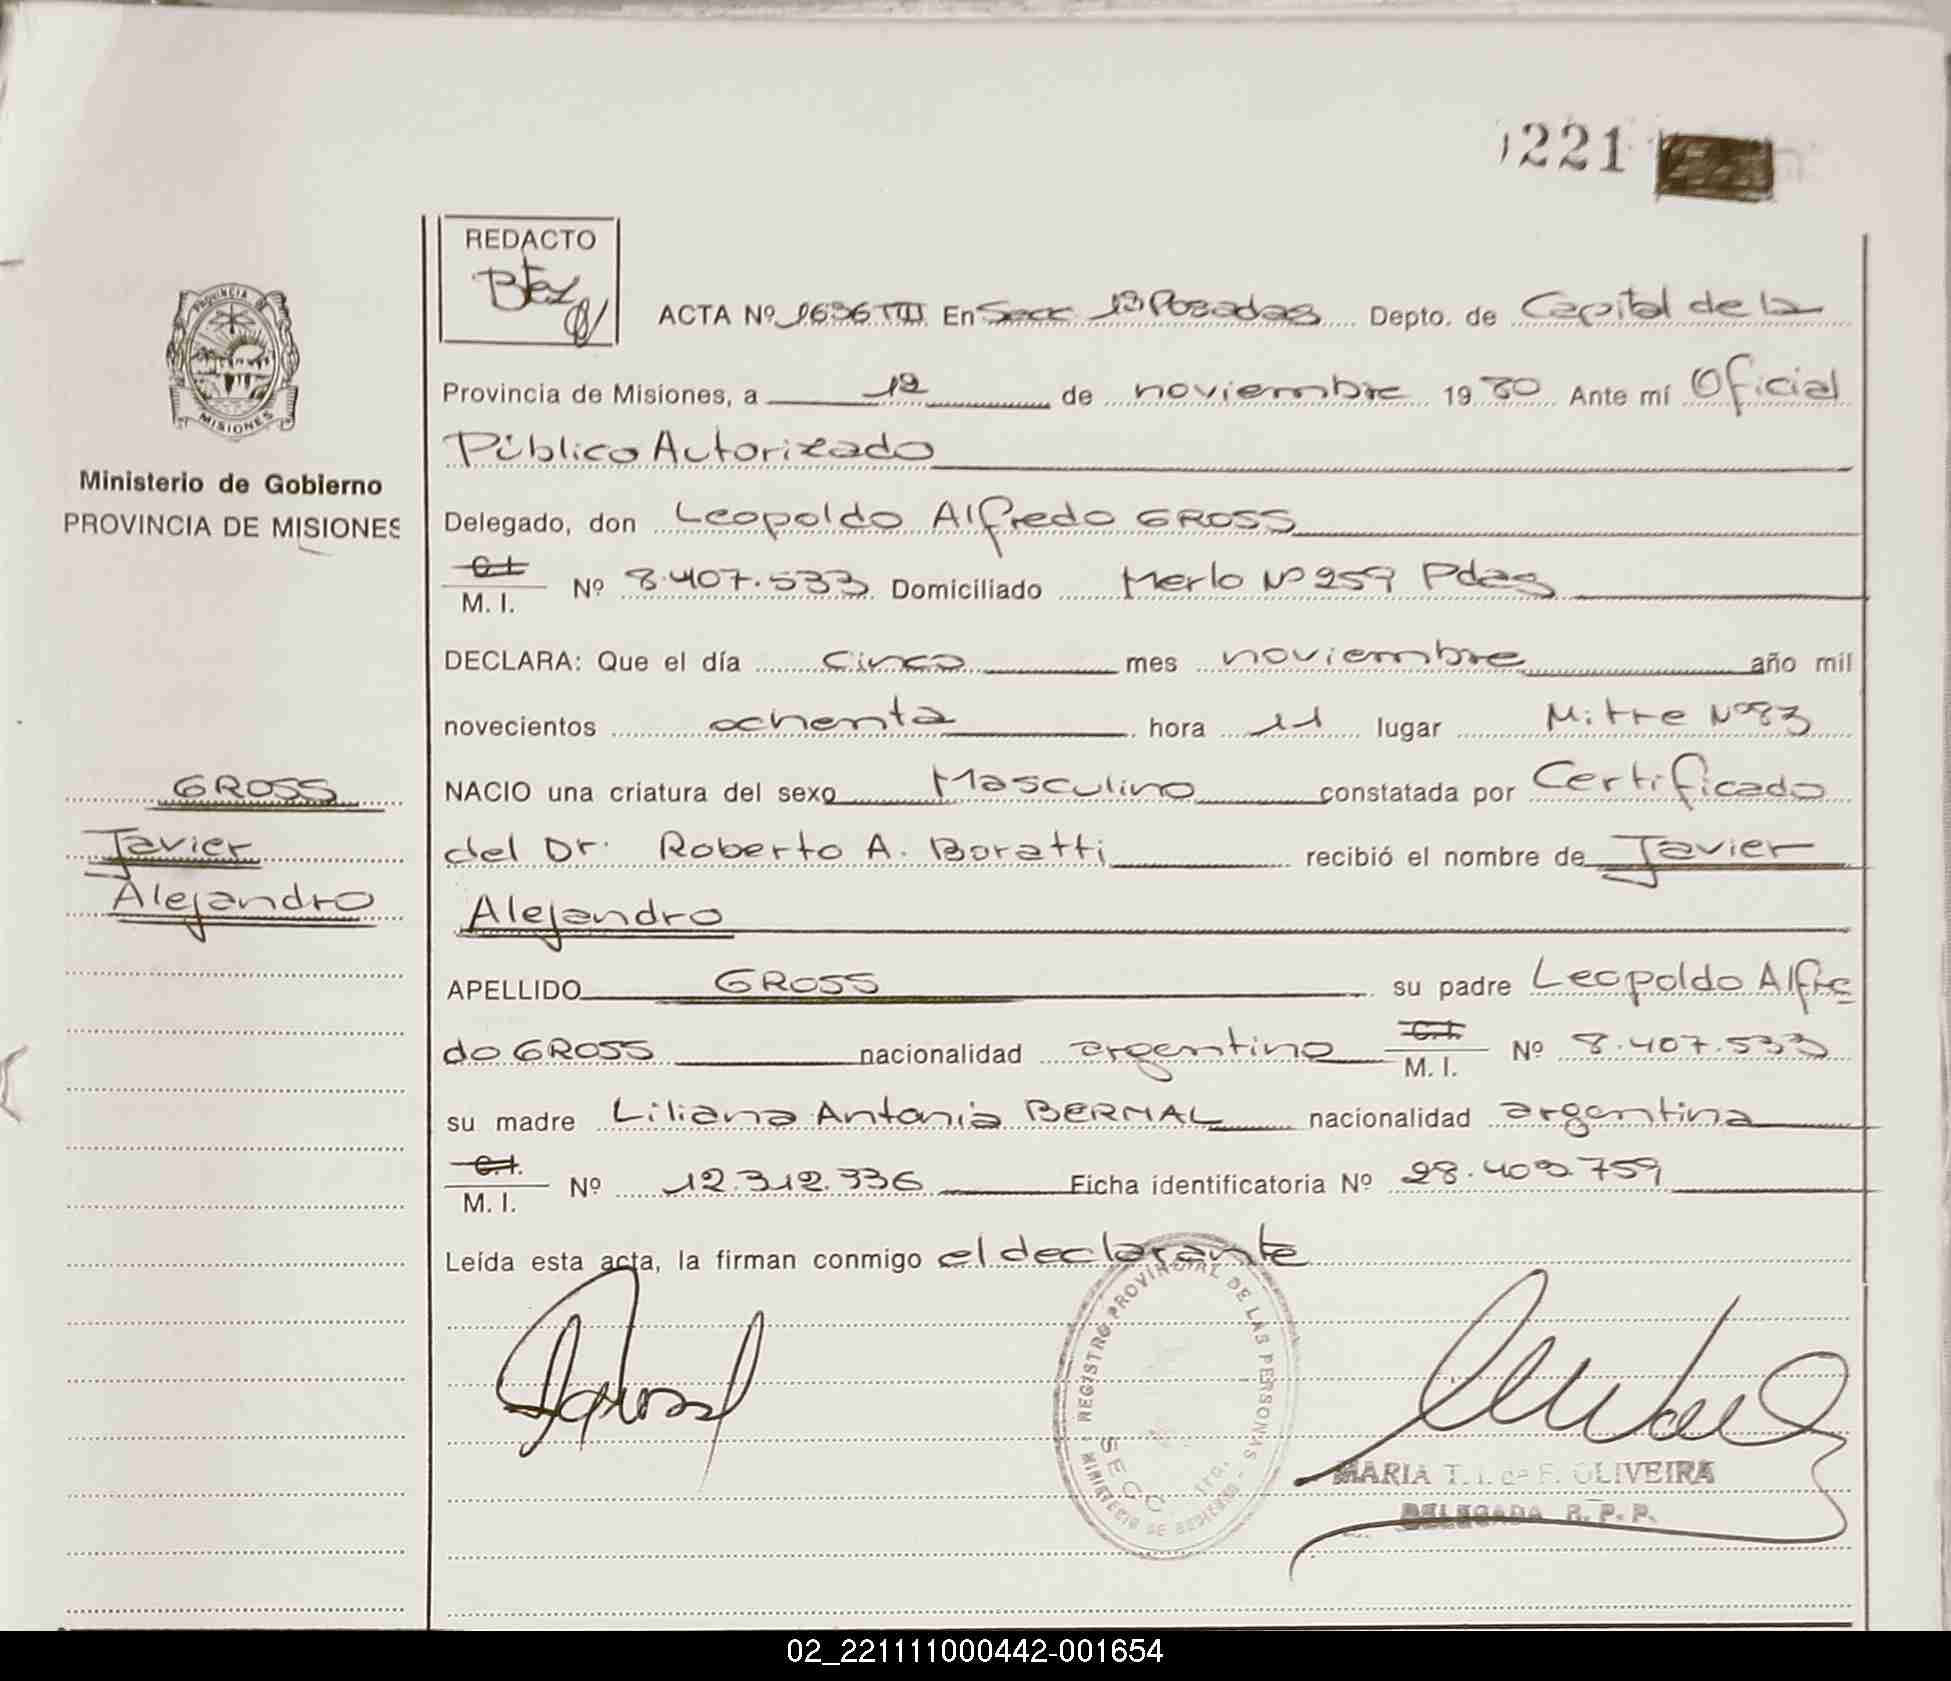 221
REDACTO
PROVINCIA DE
MISIONES
Ministerio de Gobierno
PROVINCIA DE MISIONES
ACTA Nº 1636 TIII En Secc 1ª Posadas Depto. de Capital de la
Provincia de Misiones, a 12 de noviembre 1980 Ante mí Oficial
Público Autorizado
Delegado, don Leopoldo Alfredo GROSS
C.I.
M. I. Nº 8.407.533 Domiciliado Merlo Nº 259 Pdas
DECLARA: Que el día cinco mes noviembre año mil
novecientos ochenta hora 11 lugar Mitre Nº 83
NACIO una criatura del sexo Masculino constatada por Certificado
del Dr. Roberto A. Boratti recibió el nombre de Javier
Alejandro
GROSS
Javier
Alejandro
APELLIDO GROSS su padre Leopoldo Alfre
do GROSS nacionalidad argentino C.I. M. I. Nº 8.407.533
su madre Liliana Antonia BERNAL nacionalidad argentina
C.I.
M. I. Nº 12.312.336 Ficha identificatoria Nº 28.402.759
Leída esta acta, la firman conmigo el declarante
REGISTRO PROVINCIAL DE LAS PERSONAS
MINISTERIO DE GOBIERNO
SECC
MARIA T. I. de F. OLIVEIRA
DELEGADA R. P. P.
02_221111000442-001654